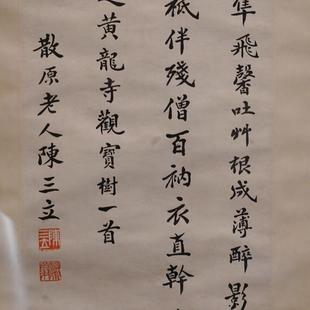 隼飛馨吐艸根成薄醉影
祗伴殘僧百衲衣直幹
黃龍寺觀寶樹一首
散原老人陳三立